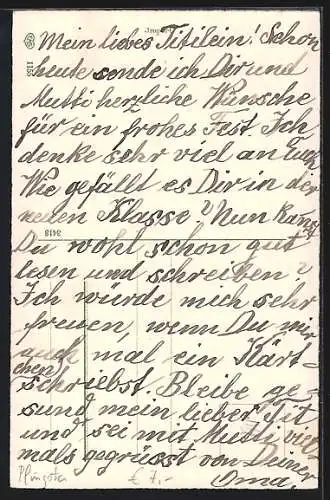 Mein liebes Titilein! Schon
heute sende ich Dir und
Mutti herzliche Wünsche
für ein frohes Fest. Ich
denke sehr viel an Euch
Wie gefällt es Dir in der
neuen Klasse? Nun kannst
Du wohl schon gut
lesen und schreiben?
Ich würde mich sehr
freuen, wenn Du mir
auch mal ein Kärt-
chen schriebst. Bleibe ge-
sund mein lieber Tit
und sei mit Mutti viel-
mals gegrüsst von Deiner
Oma.
Pfingsten € 7,-
3418